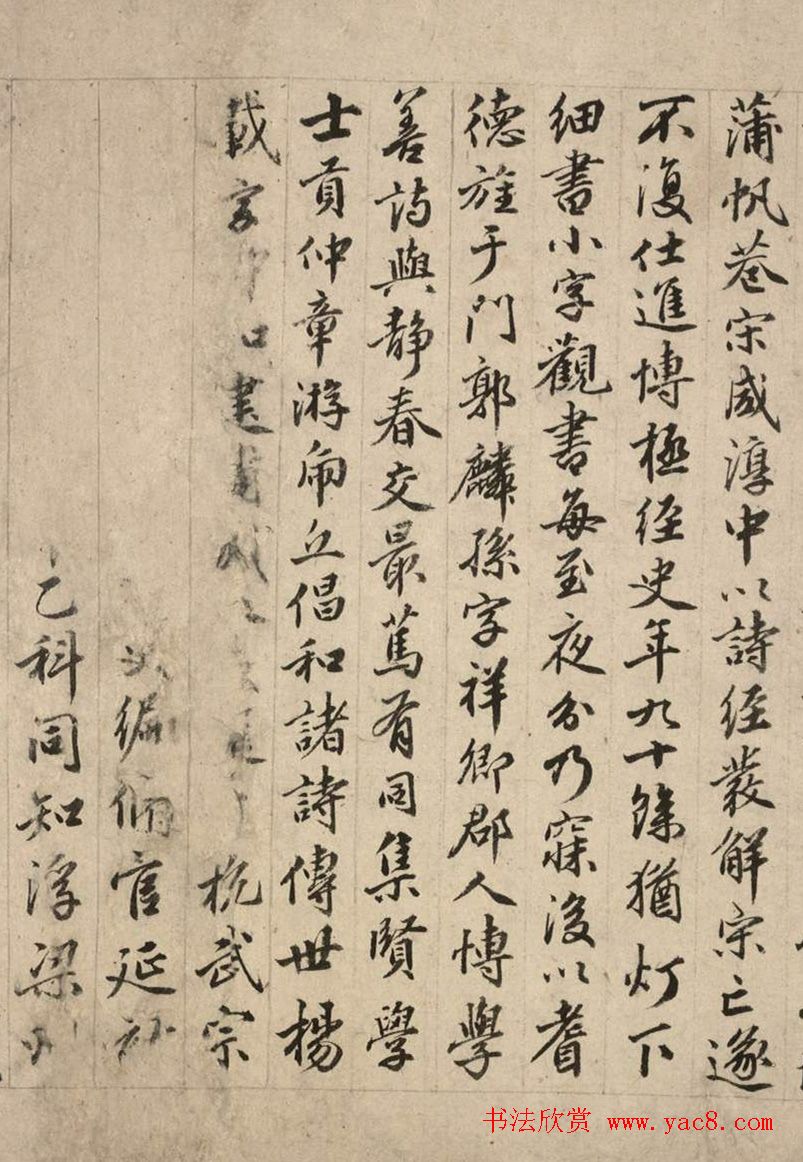 蒲帆巷宋咸淳中以詩經發解宋亡遂
不復仕進博極經史年九十餘猶灯下
細書小字觀書每至夜分乃寐後以耆
德旌于門郭麟孫字祥卿郡人博學
善詩與靜春交最篤有同集賢學
士貢仲章游虎丘倡和諸詩傳世楊
載字 杭武宗
編脩官延祐
乙科同知浮梁州
书法欣赏 www.yac8.com